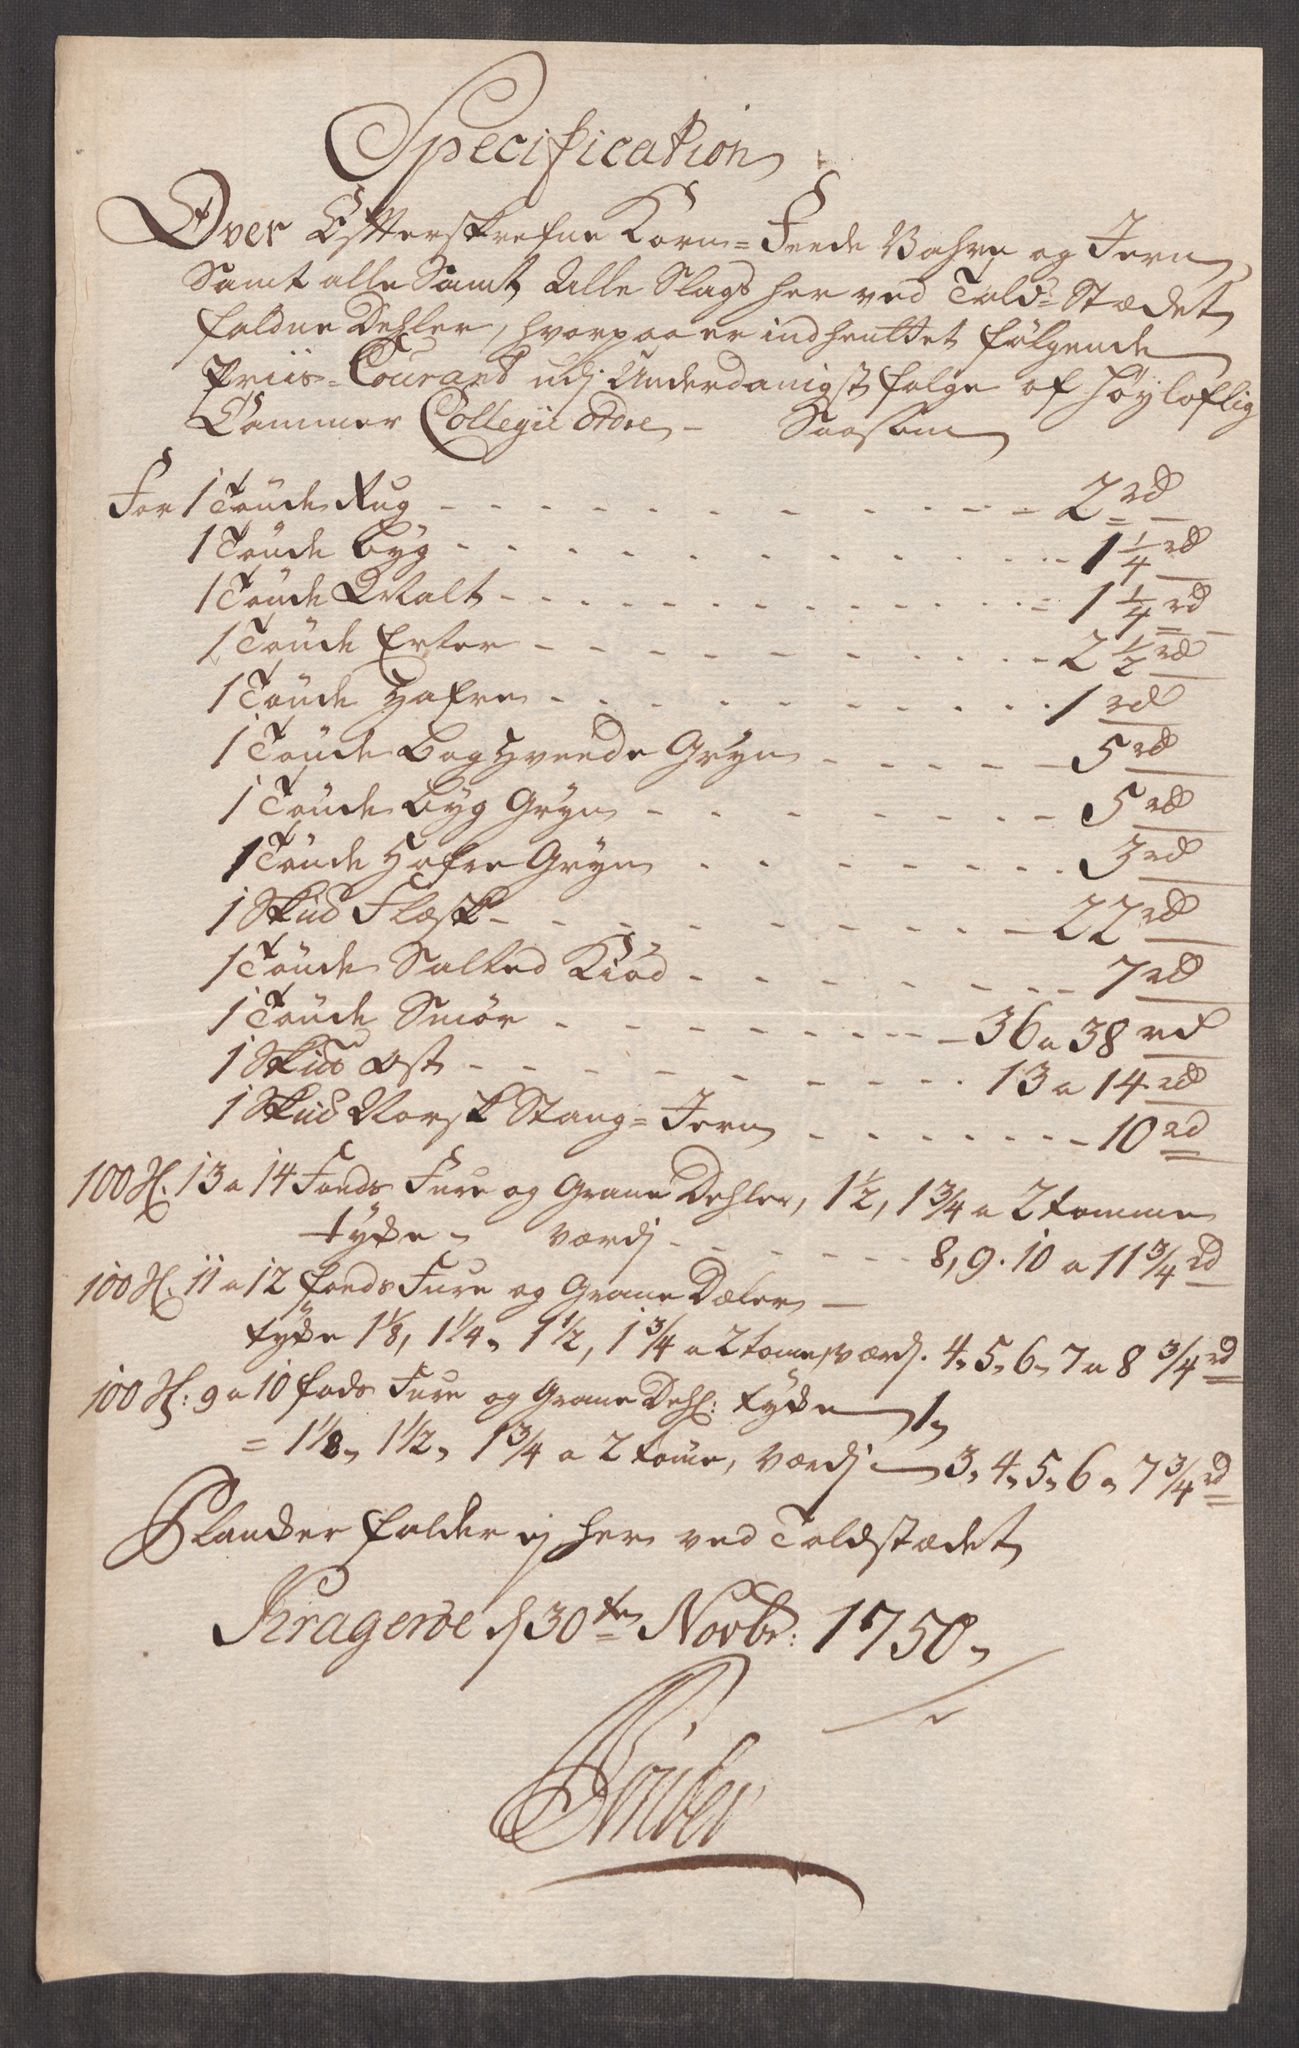 Specification
Over Efterskrefne Korn= Feede Vahre og Jern,
Samt alle Samt Alle Slags her ved Told= Stædet
faldne Dehler, hvorpaa er indhenttet følgende
Priis=Courant udj Underdanigst følge af Høyloflig
Cammer Collegii Ordre,- Saasom
For 1 Tønde Rug - - - 2 rd
1 Tønde Byg - - - 1 1/4 rd
1 Tønde Malt - - - 1 1/4 rd
1 Tønde Erter - - - 2 1/2 rd
1 Tønde Hafre - - - 1 rd
1 Tønde Boghveede Gryn - - - 5 rd
1 Tønde Byg Gryn - - - 5 rd
1 Tønde Hafre Gryn - - - 3 rd
1 Skud Flæsk - - - 22 rd
1 Tønde Salted Kiød - - - 7 rd
1 Tønde Smør - - - 36 a 38 rd
1 Skud Ost - - - 13 a 14 rd
1 Skud Norsk Stang=Jern - - - 10 rd
100 St. 13 a 14 Foeds Fure og Grane Dehler, 1 1/2, 1 3/4 a 2 tomme
tykke, værdj - - - 8, 9. 10 a 11 3/4 rd
100 St. 11 a 12 foeds Fure og Grane Dæler
tykke 1 1/8, 1 1/4, 1 1/2, 1 3/4 a 2 tome, værdj. 4, 5, 6, 7 a 8 3/4 rd
100 St: 9 a 10 fods Fure og Grane Dehl: tykke 1,
= 1 1/8, 1 1/2, 1 3/4 a 2 tome, værdj 3, 4, 5, 6 a 7 3/4 rd
Plancker falder ej her ved Toldstædet
Kragerøe d 30ten Novbr: 1750,